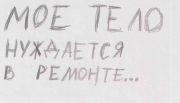 МОЕ ТЕЛО
НУЖДАЕТСЯ
В РЕМОНТЕ...